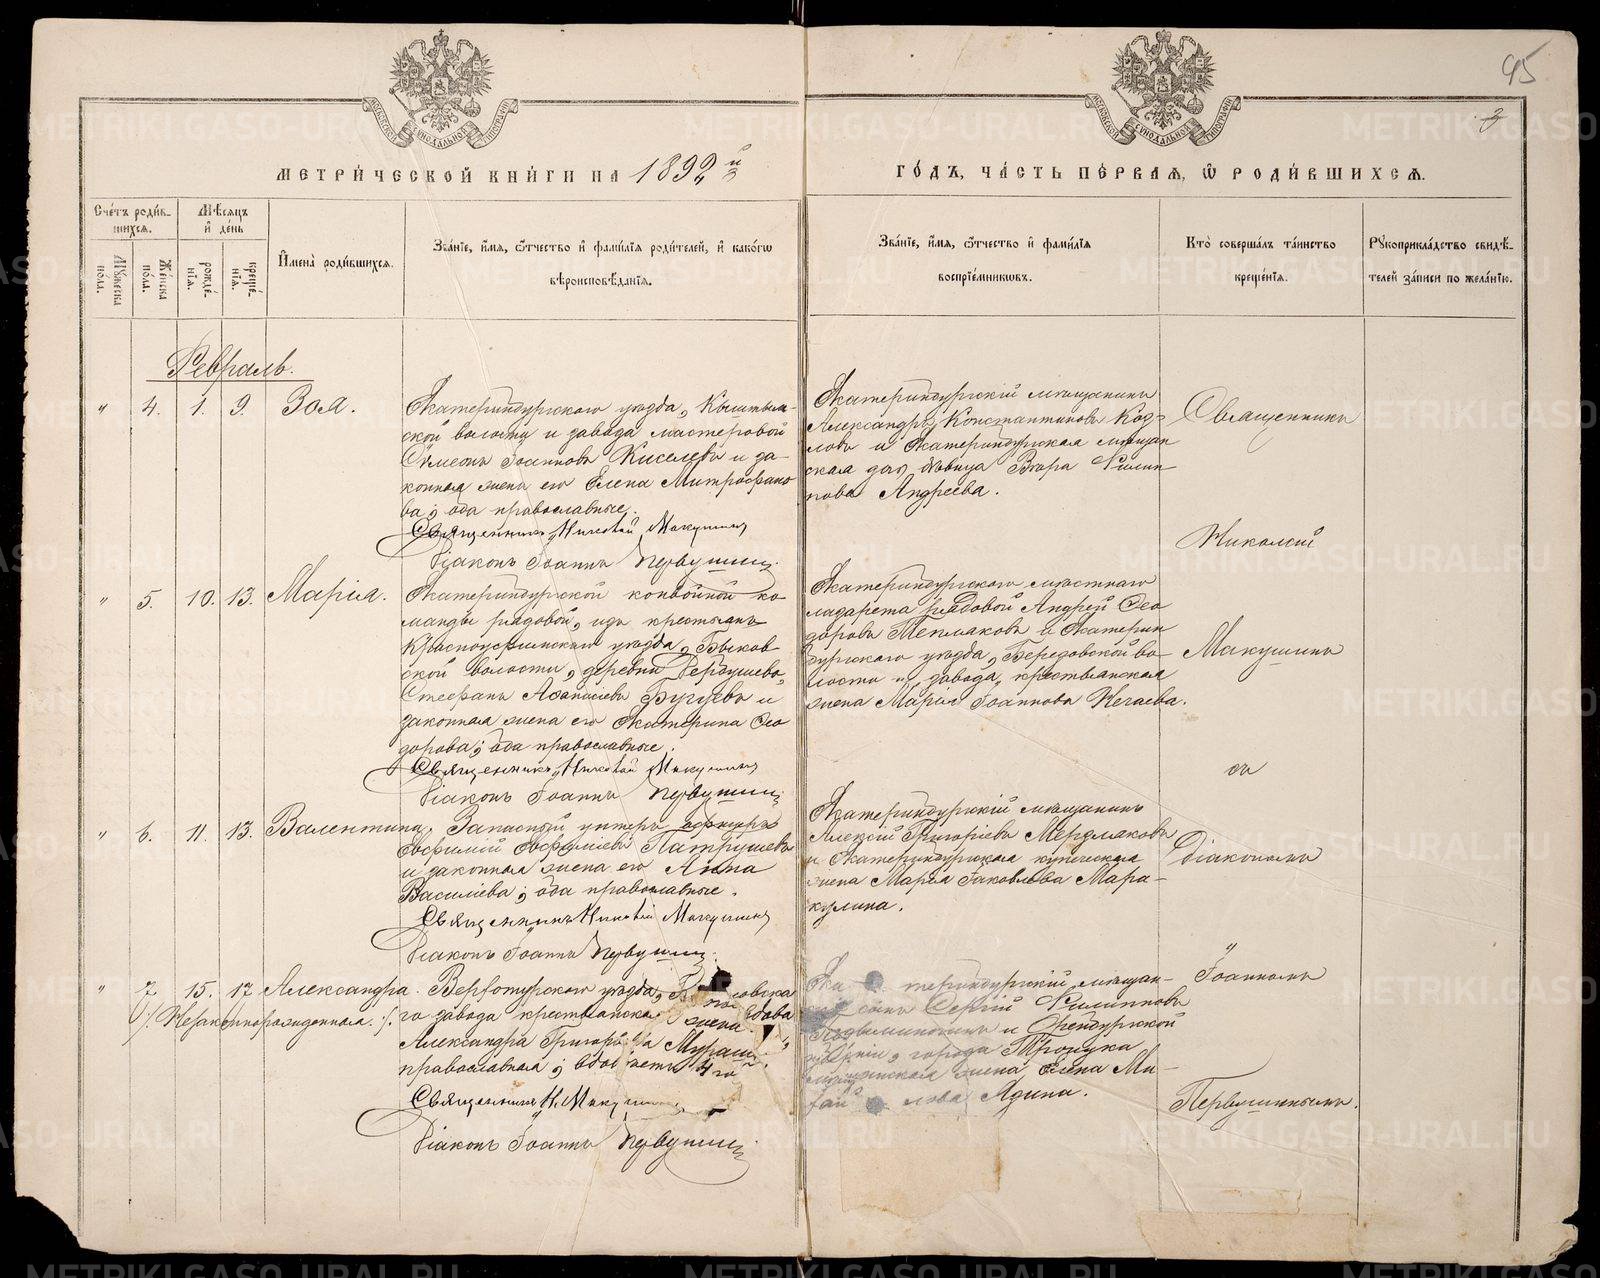 95
3
МЕТРИЧЕСКОЙ КНИГИ НА 1892й ГОДЪ, ЧАСТЬ ПЕРВАЯ, Ѿ РОДИВШИХСЯ.
Счетъ родив-
шихся.
Мужеска пола.
Женска пола.
Мѣсяцъ и день
рожде-
нія.
креще-
нія.
Имена родившихся.
Званіе, имя, отчество и фамилія родителей, и какогѡ
вѣроисповѣданія.
Званіе, имя, отчество и фамилія
воспріемникѡвъ.
Кто совершалъ таинство
крещенія.
Рукоприкладство свидѣ-
телей записи по желанію.
Февраль.
" 4. 1. 9. Зоя.
Екатеринбургскаго уѣзда, Кыштым-
ской волости и завода мастеровой
Сѷмеонъ Іоанновъ Киселевъ и за-
конная жена его Елена Митрофано-
ва; оба православные.
Священникъ Николай Макушинъ
Діаконъ Іоаннъ Первушинъ
Екатеринбургскій мѣщанинъ
Александръ Константиновъ Коз-
ловъ и Екатеринбургская мѣщан
ская дочь дѣвица Вѣра Филип-
пова Андреева.
" 5. 10. 13. Марія.
Екатеринбургской конвойной ко-
манды рядовой, изъ крестьянъ
Красноуфимскаго уѣзда, Быков-
ской волости, деревни
Стефанъ Аѳанасіевъ и
законная жена его Екатерина Ѳео-
дорова; оба православные.
Священникъ Николай Макушинъ
Діаконъ Іоаннъ Первушинъ
Екатеринбургскаго мѣстнаго
лазарета рядовой Андрей Ѳео-
доровъ Тепляковъ и Екатерин
бургскаго уѣзда, Березовской во-
лости и завода, крестьянская
жена Марія Іоаннова Нечаева.
" 6. 11. 13. Валентина.
Запасный унтеръ офицеръ
Евфимій Евфиміевъ Патрушевъ
и законная жена его Анна
Василіева; оба православные.
Священникъ Николай Макушинъ
Діаконъ Іоаннъ Первушинъ
Екатеринбургскій мѣщанинъ
Алексій Григоріевъ Мерзляковъ
и Екатеринбургская купеческая
жена Марія Іаковлева Мара-
кулина.
" 7. 15. 17. Александра
/. Незаконнорожденная. /.
Верхотурскаго уѣзда,
го завода крестьянска жена вдова
Александра
православная;
Священникъ Н. Макушинъ
Діаконъ Іоаннъ Первушинъ
Ека теринбургскій мѣщан-
скій сынъ Сергій Филипповъ
и Оренбургской
губерніи, города Троицка
мѣщанская жена Елена Ми-
хаи лова Ядина.
Священникъ
Николай
Макушинъ
съ
Діакономъ
Іоанномъ
Первушинымъ.
METRIKI.GASO-URAL.RU